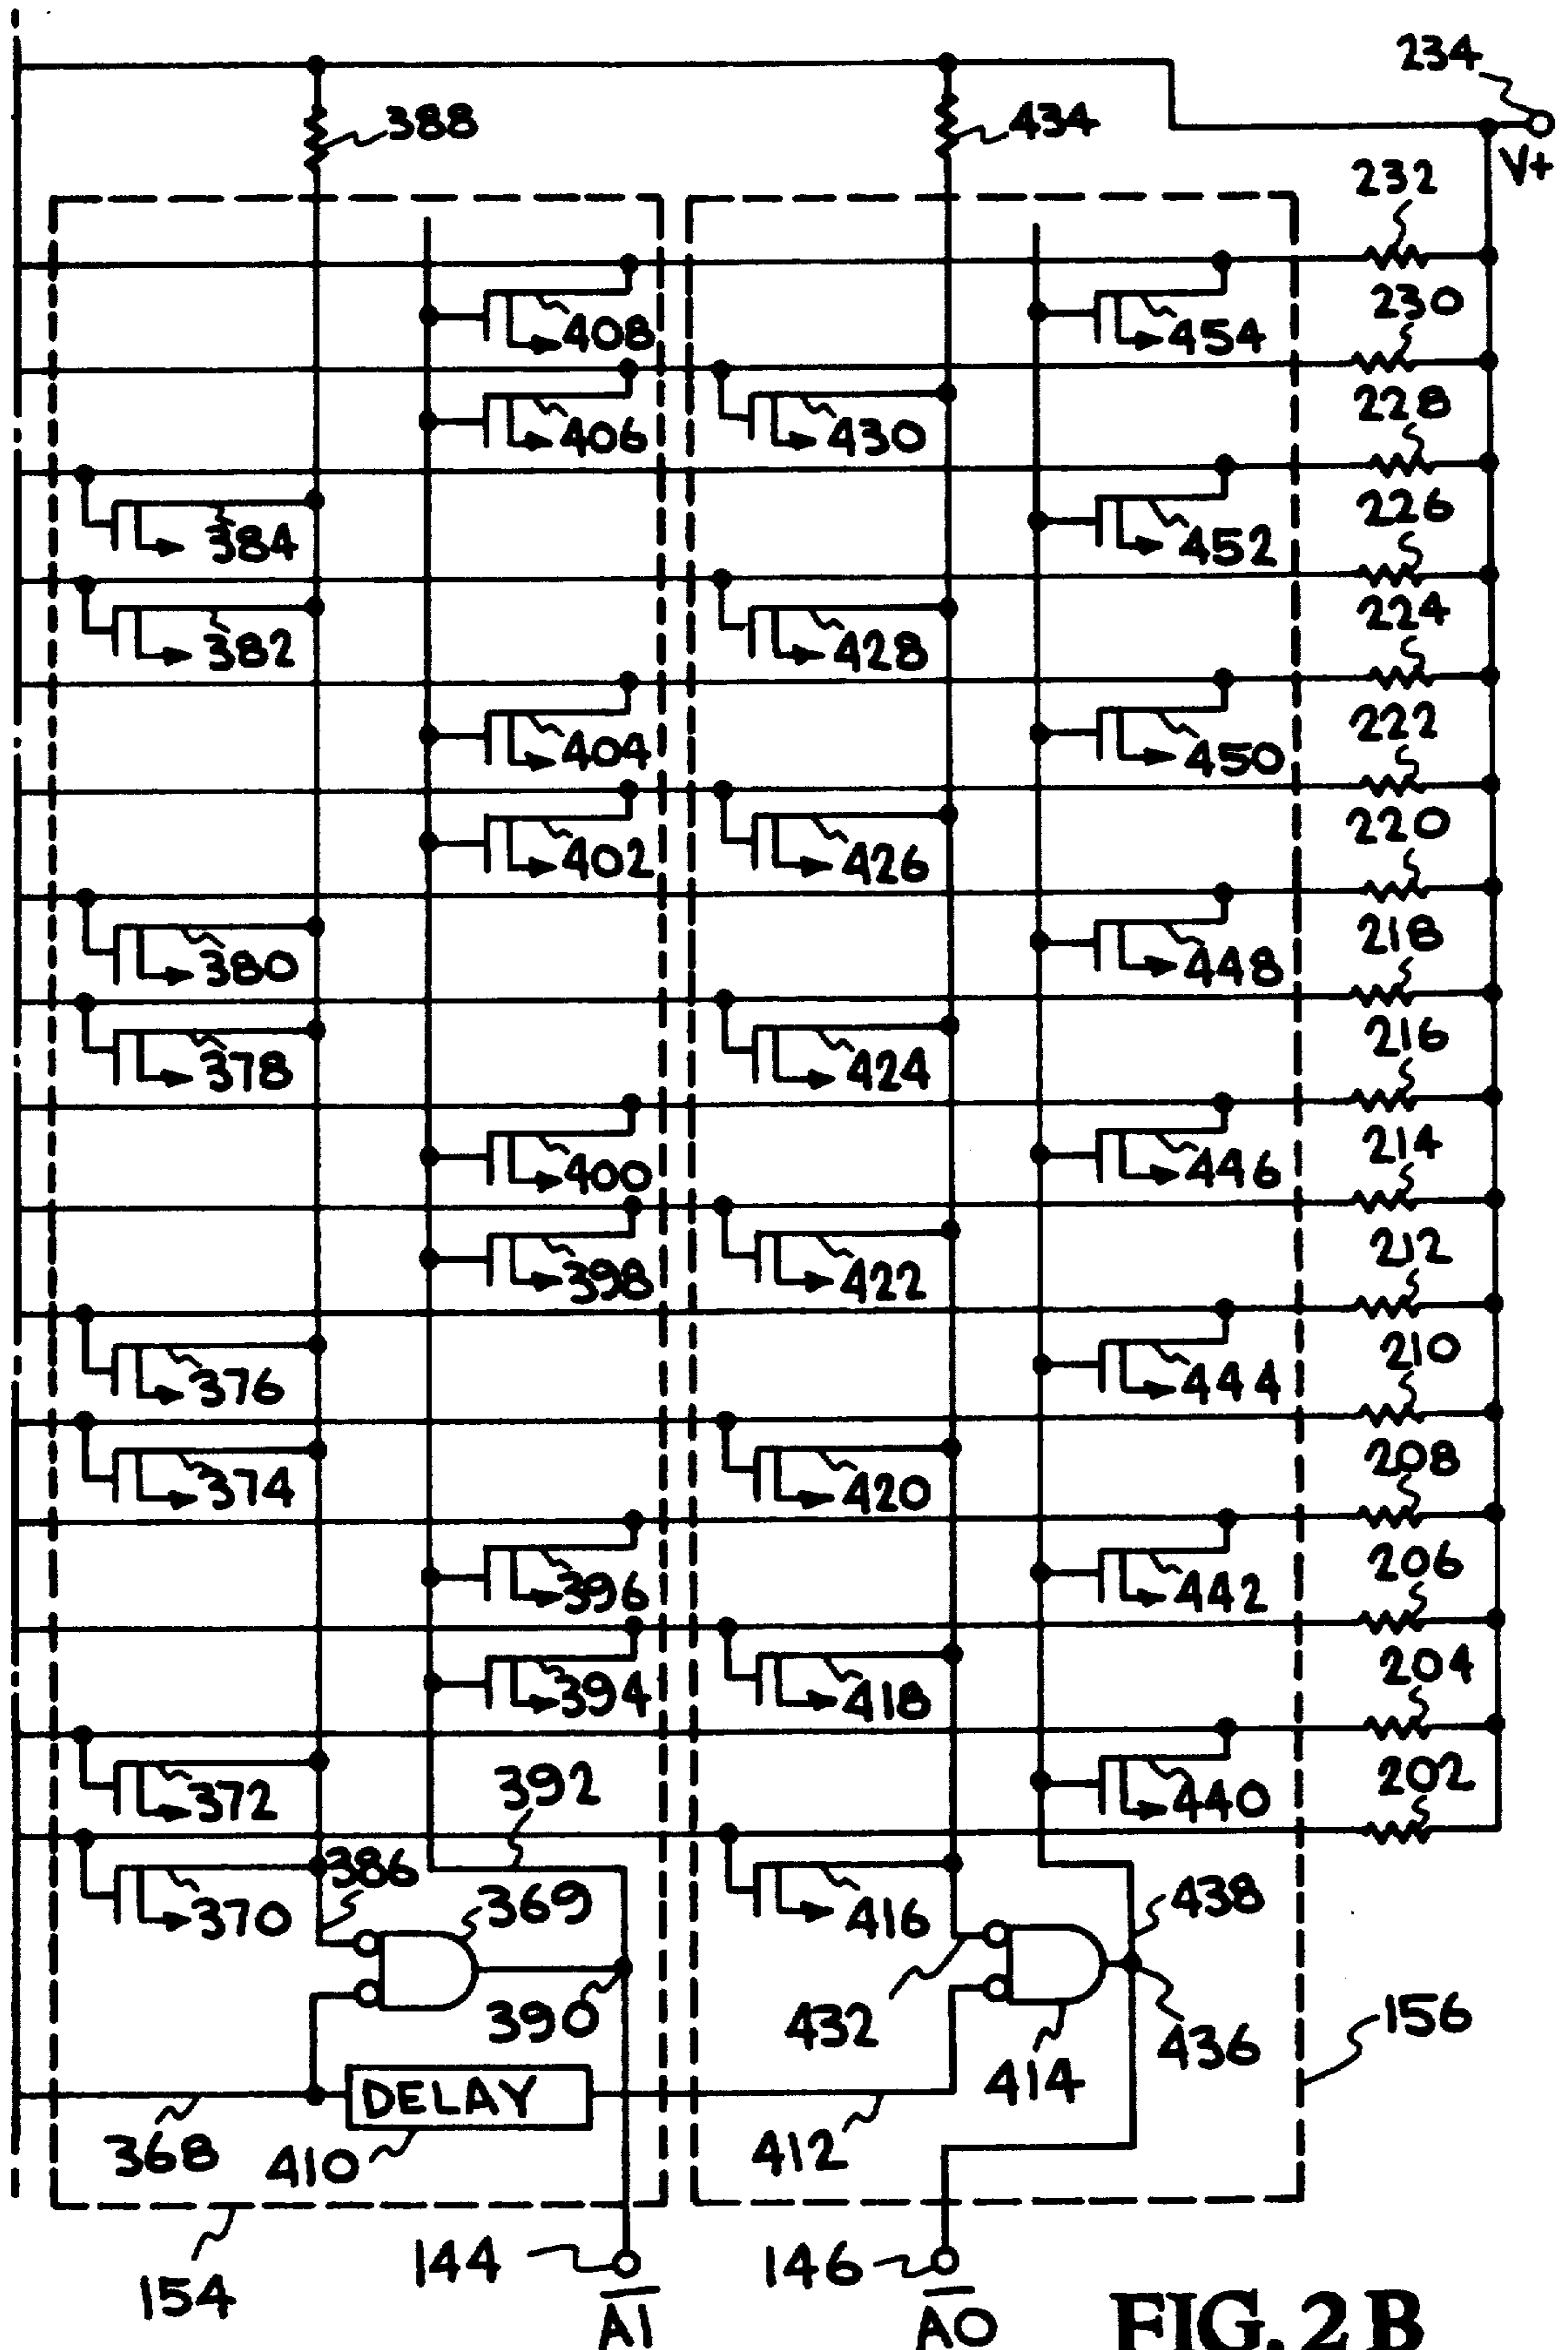 234
388
434
V+
232
408
454
230
406
430
228
384
452
226
382
428
224
404
450
222
402
426
220
380
448
218
378
424
216
400
446
214
398
422
212
376
444
210
374
420
208
396
442
206
394
418
204
372
392
440
202
386
370
369
416
438
390
432
414
436
156
DELAY
368
410
412
154
144
146
A̅1̅
A̅0̅
FIG. 2 B